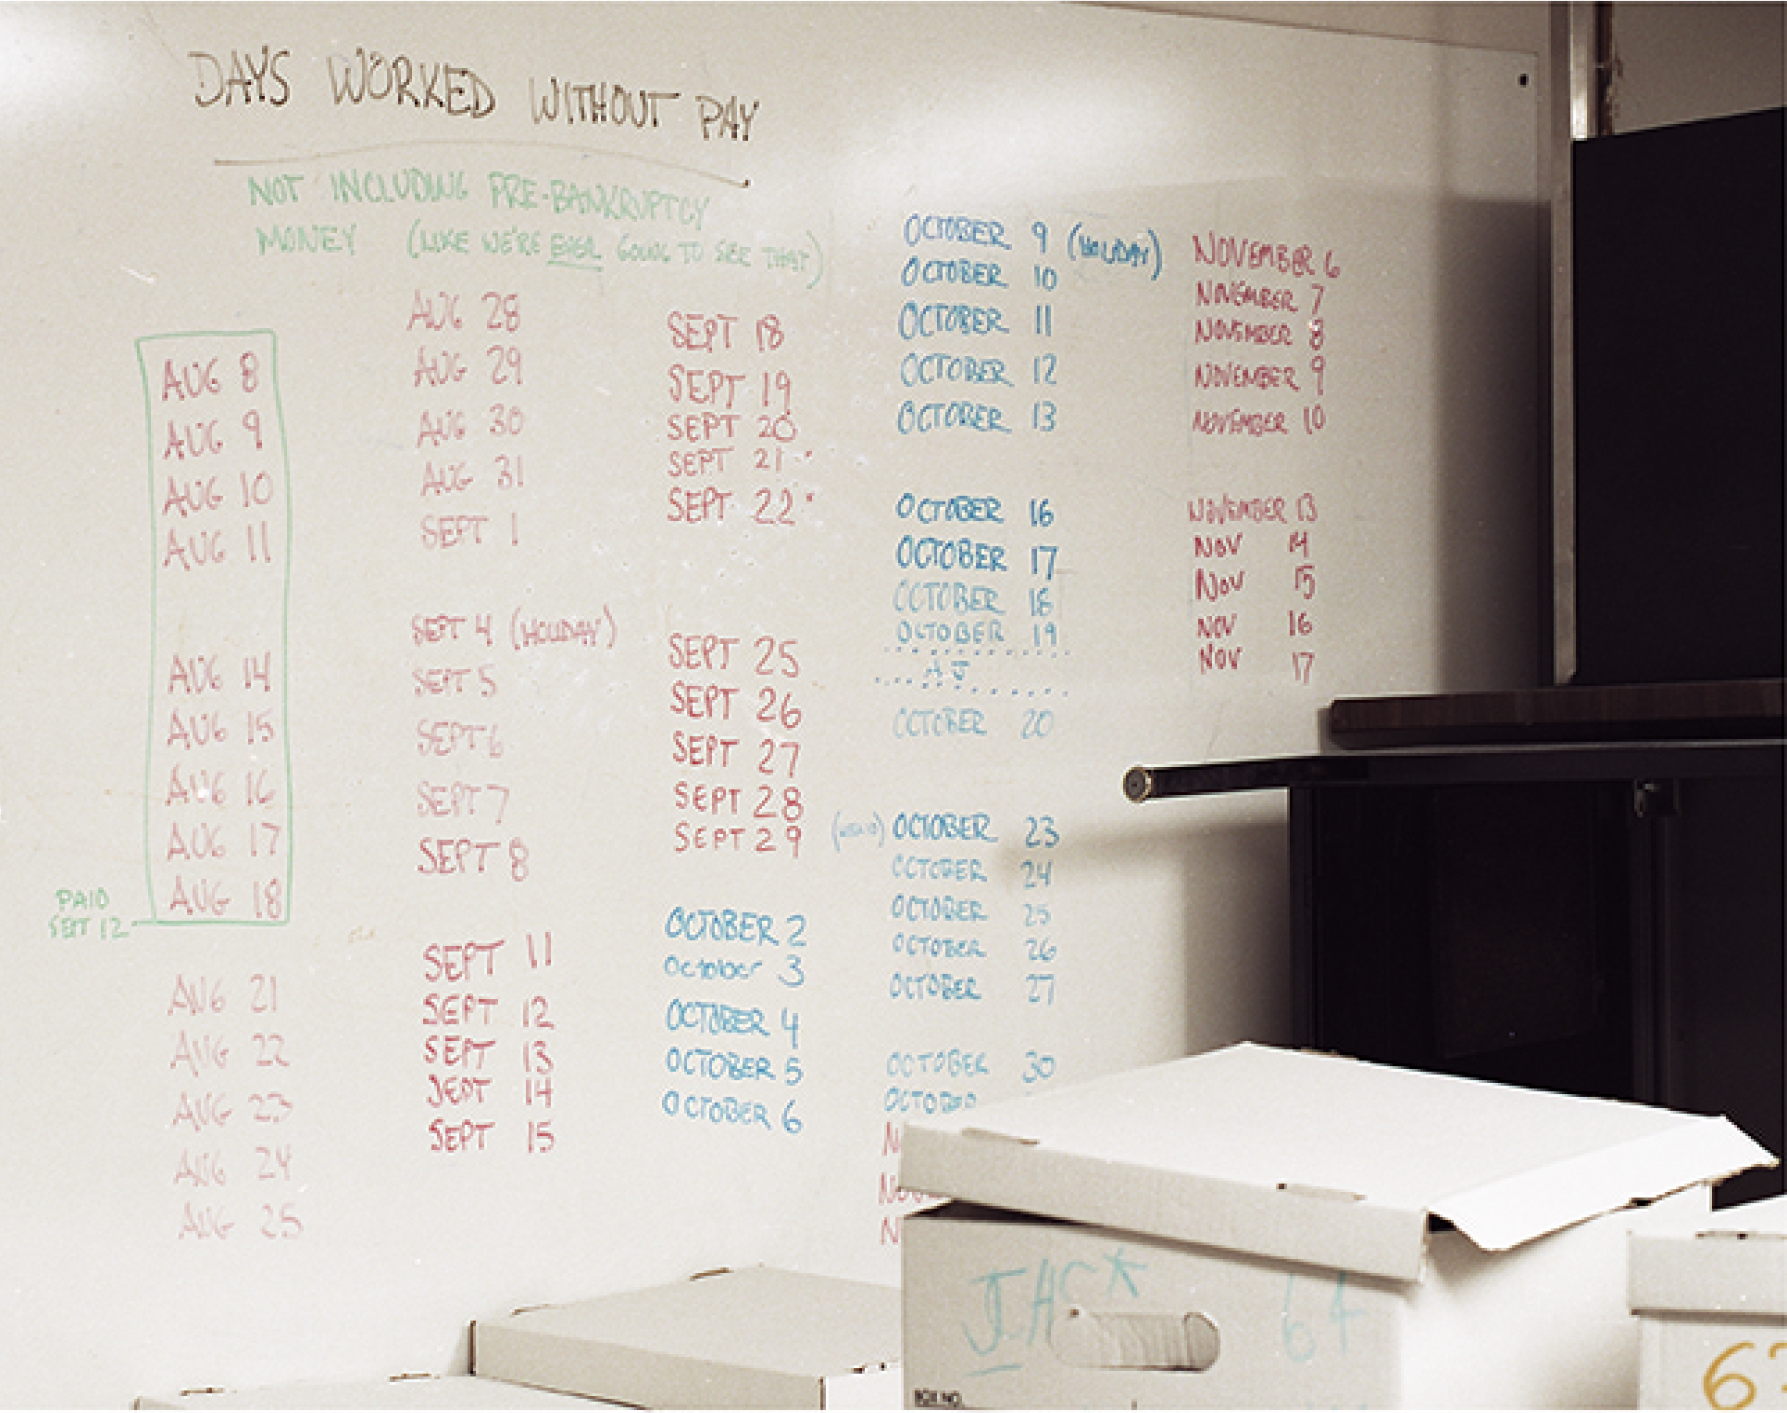 DAYS WORKED WITHOUT PAY
NOT INCLUDING PRE-BANKRUPTCY
MONEY (LIKE WE'RE EVER GOING TO SEE THAT)
AUG 8
AUG 9
AUG 10
AUG 11
AUG 14
AUG 15
AUG 16
AUG 17
AUG 18
PAID
SEPT 12
AUG 21
AUG 22
AUG 23
AUG 24
AUG 25
AUG 28
AUG 29
AUG 30
AUG 31
SEPT 1
SEPT 4 (HOLIDAY)
SEPT 5
SEPT 6
SEPT 7
SEPT 8
SEPT 11
SEPT 12
SEPT 13
SEPT 14
SEPT 15
SEPT 18
SEPT 19
SEPT 20
SEPT 21
SEPT 22
SEPT 25
SEPT 26
SEPT 27
SEPT 28
SEPT 29
OCTOBER 2
October 3
OCTOBER 4
OCTOBER 5
OCTOBER 6
OCTOBER 9 (HOLIDAY)
OCTOBER 10
OCTOBER 11
OCTOBER 12
OCTOBER 13
OCTOBER 16
OCTOBER 17
OCTOBER 18
OCTOBER 19
AJ
OCTOBER 20
OCTOBER 23
OCTOBER 24
OCTOBER 25
OCTOBER 26
OCTOBER 27
OCTOBER 30
NOVEMBER 6
NOVEMBER 7
NOVEMBER 8
NOVEMBER 9
NOVEMBER 10
NOVEMBER 13
NOV 14
NOV 15
NOV 16
NOV 17
64
BOX NO.